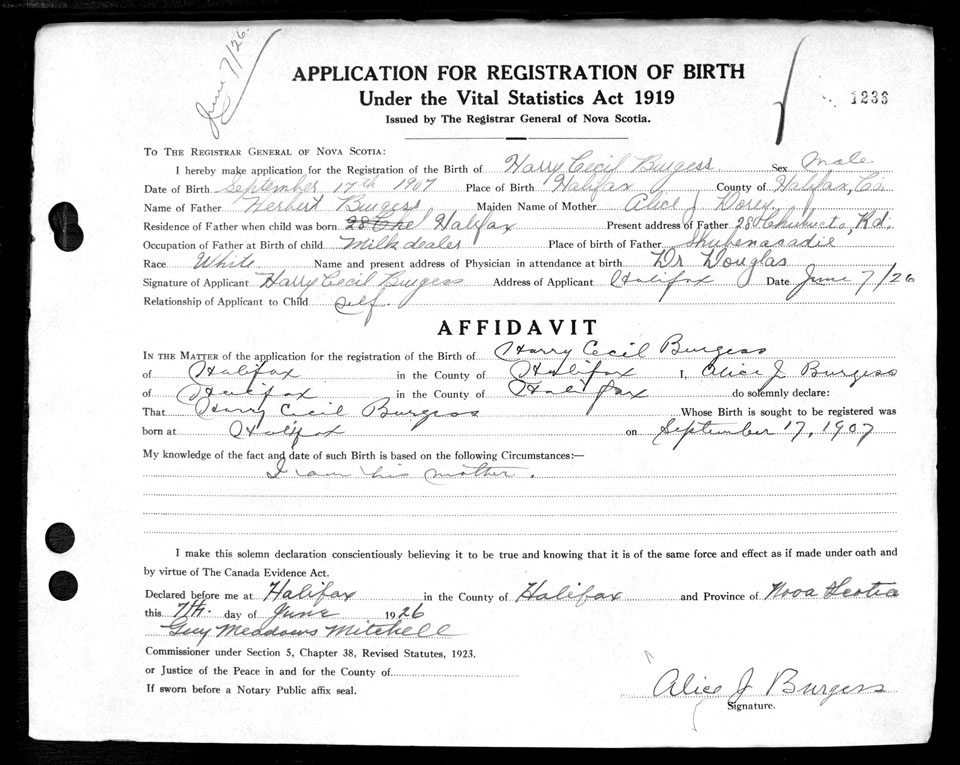 June 7/26.
APPLICATION FOR REGISTRATION OF BIRTH
Under the Vital Statistics Act 1919
Issued by The Registrar General of Nova Scotia.
1233
TO THE REGISTRAR GENERAL OF NOVA SCOTIA:
I hereby make application for the Registration of the Birth of Harry Cecil Burgess Sex Male
Date of Birth September 17th 1907 Place of Birth Halifax County of Halifax, Co.
Name of Father Herbert Burgess Maiden Name of Mother Alice J Dorey
Residence of Father when child was born Halifax Present address of Father 280 Chebucto, Rd.
Occupation of Father at Birth of child Milk dealer Place of birth of Father Shubenacadie
Race White Name and present address of Physician in attendance at birth Dr Douglas
Signature of Applicant Harry Cecil Burgess Address of Applicant Halifax Date June 7/26
Relationship of Applicant to Child self.
AFFIDAVIT
IN THE MATTER of the application for the registration of the Birth of Harry Cecil Burgess
of Halifax in the County of Halifax I, Alice J Burgess
of Halifax in the County of Halifax do solemnly declare:
That Harry Cecil Burgess Whose Birth is sought to be registered was
born at Halifax on September 17, 1907
My knowledge of the fact and date of such Birth is based on the following Circumstances:—
I am his mother.
I make this solemn declaration conscientiously believing it to be true and knowing that it is of the same force and effect as if made under oath and
by virtue of The Canada Evidence Act.
Declared before me at Halifax in the County of Halifax and Province of Nova Scotia
this 7th. day of June 1926
Guy Meadows Mitchell
Commissioner under Section 5, Chapter 38, Revised Statutes, 1923.
or Justice of the Peace in and for the County of
If sworn before a Notary Public affix seal.
Alice J Burgess
Signature.